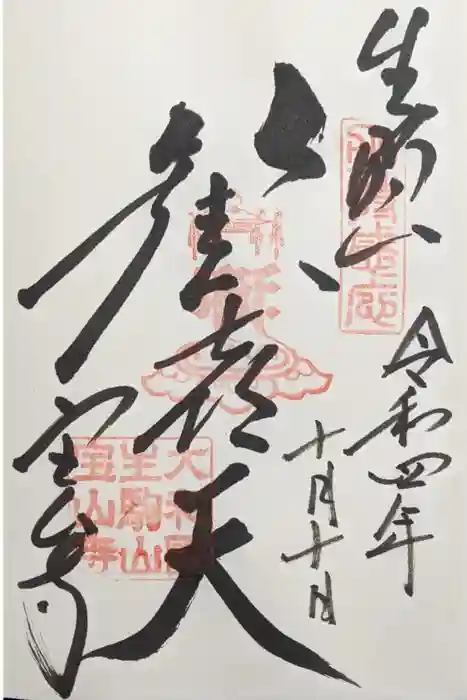 生駒山
令和四年
十月十日
歓喜天
宝山寺
大和國
生駒山
宝山寺